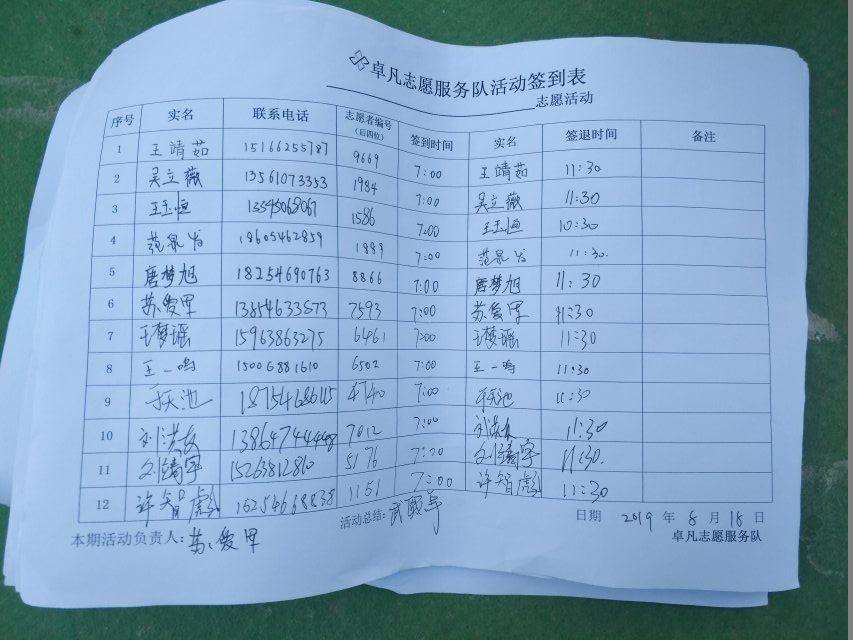 卓凡志愿服务队活动签到表
志愿活动
序号 实名 联系电话 志愿者编号（后四位） 签到时间 实名 签退时间 备注
1 王靖茹 15166255787 9669 7:00 王靖茹 11:30
2 吴立薇 13561073353 1984 7:00 吴立薇 11:30
3 王玉恒 13345068067 1586 7:00 王玉恒 10:30
4 18605462859 1889 7:00 11:30
5 唐梦旭 18254690763 8866 7:00 唐梦旭 11:30
6 苏爱军 13854633573 7593 7:00 苏爱军 11:30
7 王梦瑶 15963863275 6461 7:00 王梦瑶 11:30
8 王一鸣 15006881610 6502 7:00 王一鸣 11:30
9 4740 7:00 11:30
10 7012 7:00 11:30
11 15263812810 5176 7:00 11:30
12 许智彪 15254668838 1151 7:00 许智彪 11:30
本期活动负责人：苏爱军 活动总结： 日期 2019 年 8 月 18 日
卓凡志愿服务队